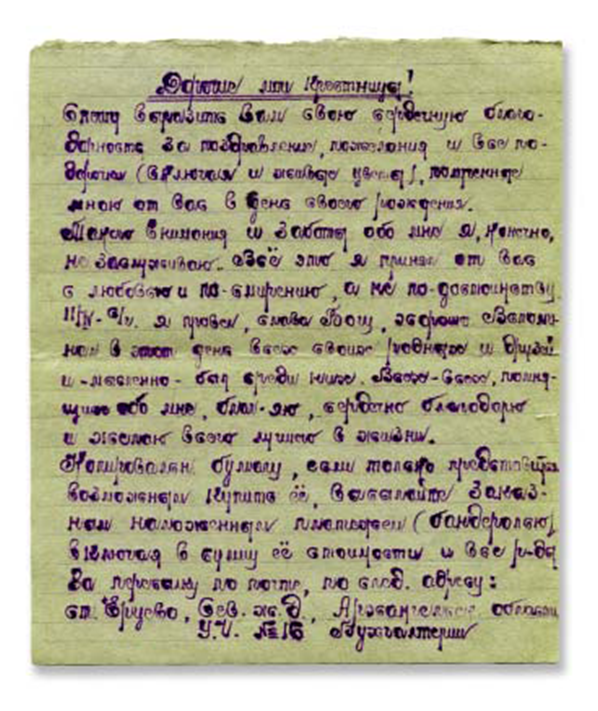 Дорогие мои Крестницы!
Спешу выразить Вам свою сердечную благо-
дарность за поздравление, пожелания и все по-
дарки (включая и живые цветы), полученные
мною от Вас в день своего рождения.
Такого внимания и заботы обо мне я, конечно,
не заслуживаю. Всё это я принял от Вас
с любовью и по-смирению, а не по-достоинству
11/IV- г/г. я провел, слава Богу, хорошо. Вспоми-
нал в этот день всех своих родных и друзей
и -мысленно- был среди них. Всех-всех, помня-
щих обо мне, благ-яю, сердечно благодарю
и желаю всего лучшего в жизни.
Копировальн бумагу, если только представится
возможным купить её, высылайте заказ-
ным наложенным платежом (бандеролью)
включая в сумму её стоимости и все р-ды
за пересылку по почте, по след. адресу:
ст. Ерцево, Сев. ж. д., Архангельской области
У.Ч. №16 Бухгалтерия